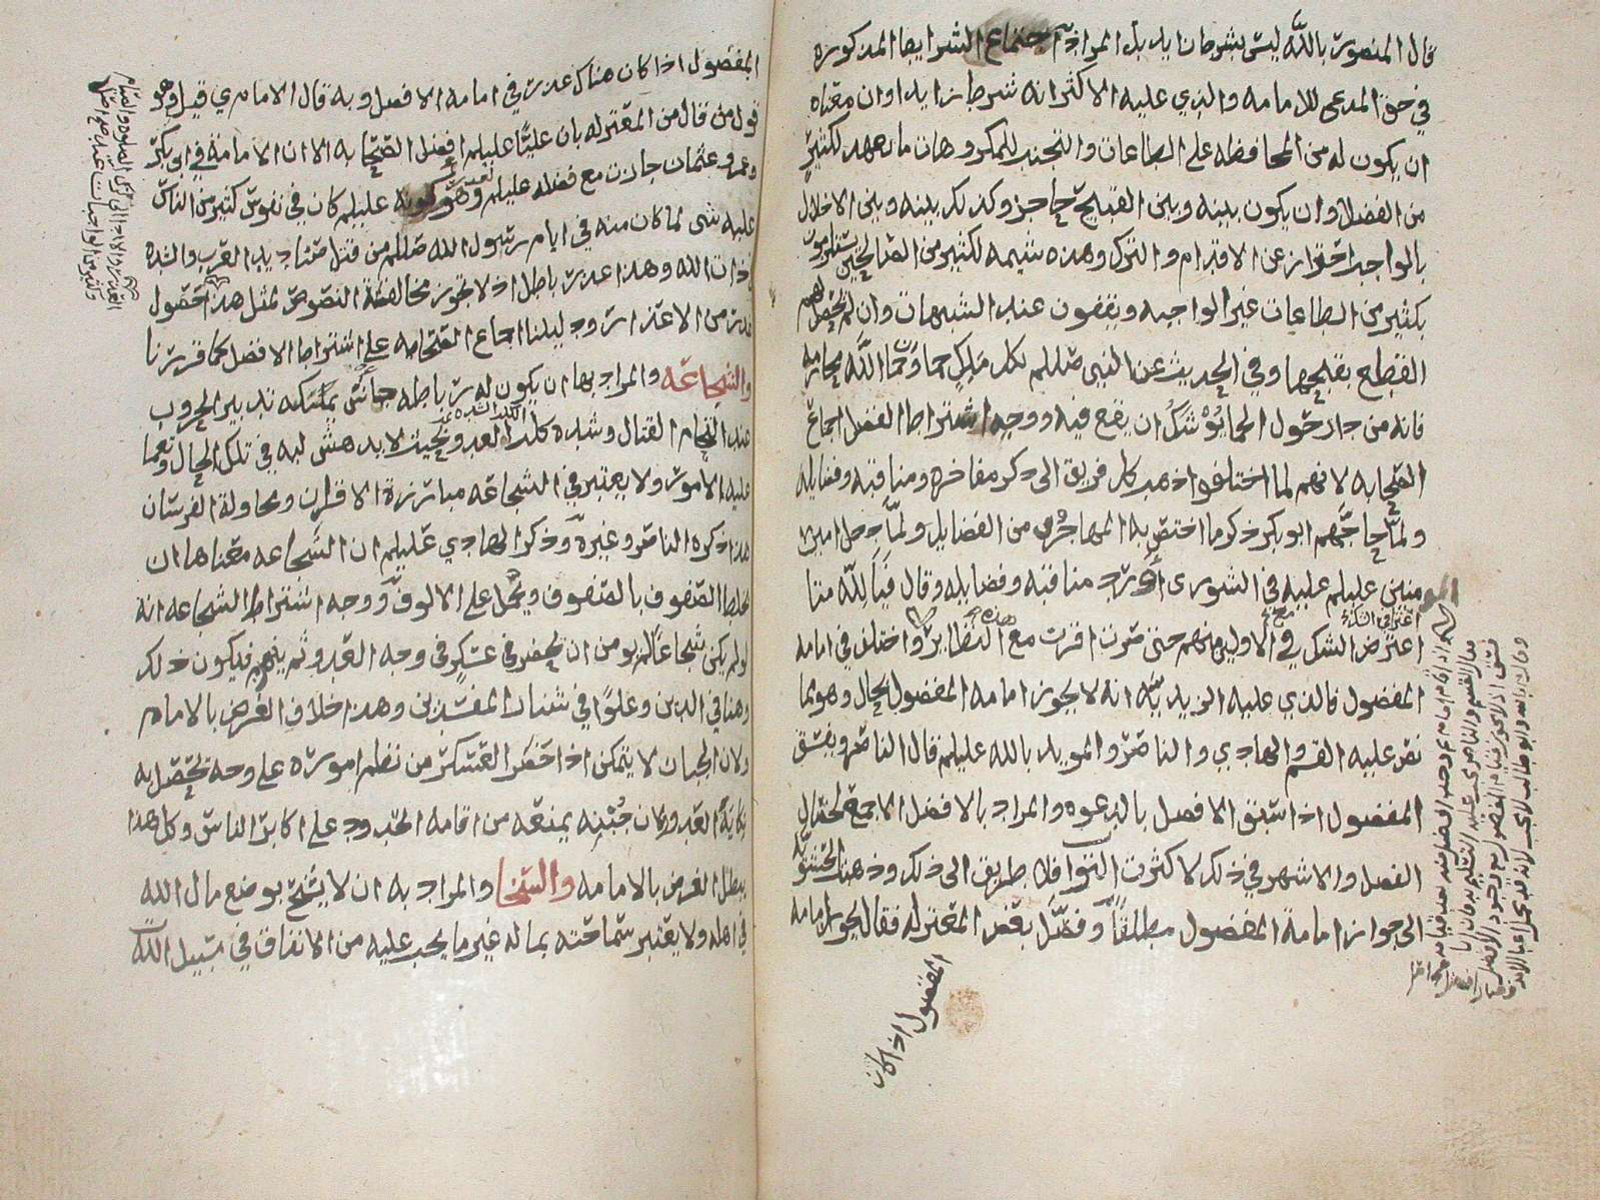 قال المنصور بالله ليس بشرط زايد بل المراد اجتماع الشرايط المذكوره
في حق المدعي للامامه والذي عليه الاكثر انه شرط زايد اوان معناه
ان يكون له من المحافظه على الطاعات والتجنب للمكروهات ما يعهد لكثير
من الفضلا وان يكون بينه وبين القبيح حاجز وكذلك بينه وبين الاخلال
بالواجب احتراز عن الاقدام والترك وهذه شيمه لكثير من الصالحين يستلزمون
بكثير من الطاعات غير الواجبه ويقفون عند الشبهات وان لم يحصل لهم
القطع بقبحها وفي الحديث عن النبي صللم لكل ملك حما وحما الله محارمه
فانه من جار حول الحما يوشك ان يقع فيه ووجه اشتراط الفضل اجماع
الصحابه لانهم لما اختلفوا ذهب كل فريق الى ذكر مفاخره ومناقبه وفضايله
ولما حاجهم ابو بكر ذكر ما اختص به المهاجرون من الفضايل ولما دخل امير
المومنين عليلم عليه في الشورى اورد مناقبه وفضايله وقال فيا لله متا
اعترض الشك في مع الاول منهم حتى صرت اقرن مع هذه النظاير واختلف في امامه
المفضول فالذي عليه الزيديه انه لا يجوز امامه المفضول بحال وهو ما
نص عليه القسم والهادي والناصر والمويد بالله عليلم قال الناصر ويفسق
المفضول اذا سبق الافضل بالدعوه والمراد بالافضل الاجمع لخصال
الفضل والاشهر في ذلك لا كثرة الثواب فلا طريق الى ذلك وذهبت الحشويه
الى جواز امامة المفضول مطلقا وفصل بعض المعتزله فقال يجوز امامه
المفضول اذا كان
المفضول اذا كان هناك عذر في امامه الافضل وبه قال الامام ي قيل وهو
قول من قال من المعتزله بان عليا عليلم افضل الصحابه الا ان الامامة في ابي بكر
وعمر وعثمان جازت مع فضله عليلم لعذر وهو كونه عليلم كان في نفوس كثير من الناس
عليه شي لما كان منه في ايام رسول الله صللم من قتل صناديد العرب والشده
في ذات الله وهذا عذر باطل اذ لا يجوز مخالفة النصوص لمثل هذا حصول
عذر من الاعذار ودليلنا اجماع الصحابه على اشتراط الافضل كما قررنا
والشجاعه والمراد بها ان يكون له رباطه جاش يمكنه تدبير الحروب
عند التحام القتال وشدة كلب العدو بحيث لا يدهش لبه في تلك الحال وتعما
عليه الامور ولا يعتبر في الشجاعه مبارزة الاقران ومحاولة الفرسان
هذا ذكره الناصر وغيره وذكر الهادي عليلم ان الشجاعه معناها ان
يخلط الصفوف بالصفوف ويحمل على الالوف ووجه اشتراط الشجاعه انه
لو لم يكن شجاعا لم يومن ان يحضر في عسكر في وجه العدو ثم ينهزم فيكون ذلك
وهنا في الدين وعلوا في شان المفسدين وهذا خلاف الغرض بالامام
ولان الجبان لا يتمكن اذا حضر العسكر من نظم اموره على وجه تحصل به
نكاية العدو وكان جبنه يمنعه من اقامه الحدود على اكابر الناس وكل هذا
يبطل الغرض بالامامه والسخا والمراد به ان لا يشح بوضع مال الله
في اهله ولا يعتبر سماحته بماله غير ما يجب عليه من الانفاق في سبيل الله